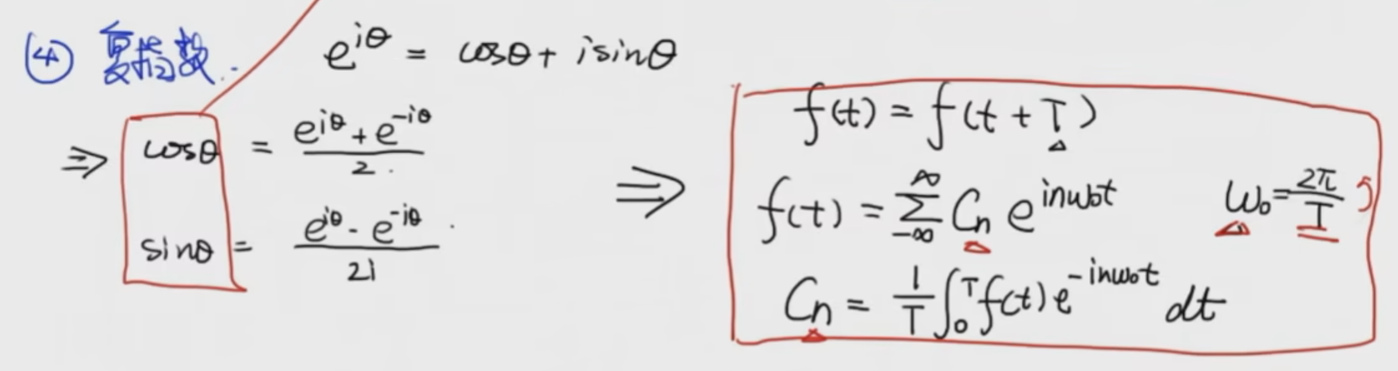 ④ 复指数. e^{iθ} = cosθ + i sinθ
⇒ cosθ = \frac{e^{iθ} + e^{-iθ}}{2}
sinθ = \frac{e^{iθ} - e^{-iθ}}{2i}
⇒ f(t) = f(t + T)
f(t) = \sum_{-∞}^{∞} C_n e^{inω_0t} ω_0 = \frac{2π}{T}
C_n = \frac{1}{T} \int_0^T f(t) e^{-inω_0t} dt